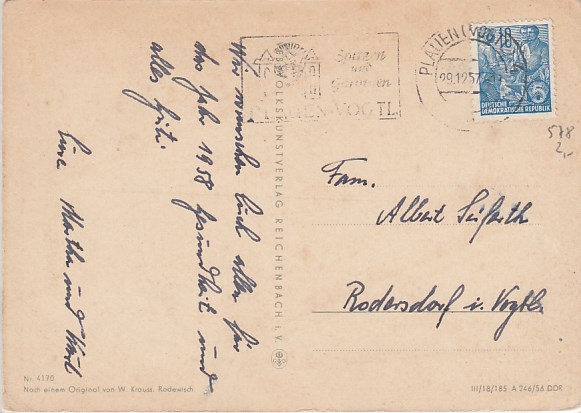 Wir wünschen Euch allen für
das Jahr 1958 Gesundheit und
alles Gute.
Eure Martha und Kurt
VOLKSKUNSTVERLAG REICHENBACH i. V.
Spitzen
und
Gardinen
PLAUEN-VOGTL
PLAUEN (VOGTL)
29.12.57
DEUTSCHE
DEMOKRATISCHE REPUBLIK
578
2,-
Fam.
Albert Seifferth
Rodersdorf i. Vogtl.
Nr. 4170
Nach einem Original von W. Krauss, Rodewisch
III/18/185 A 246/56 DDR